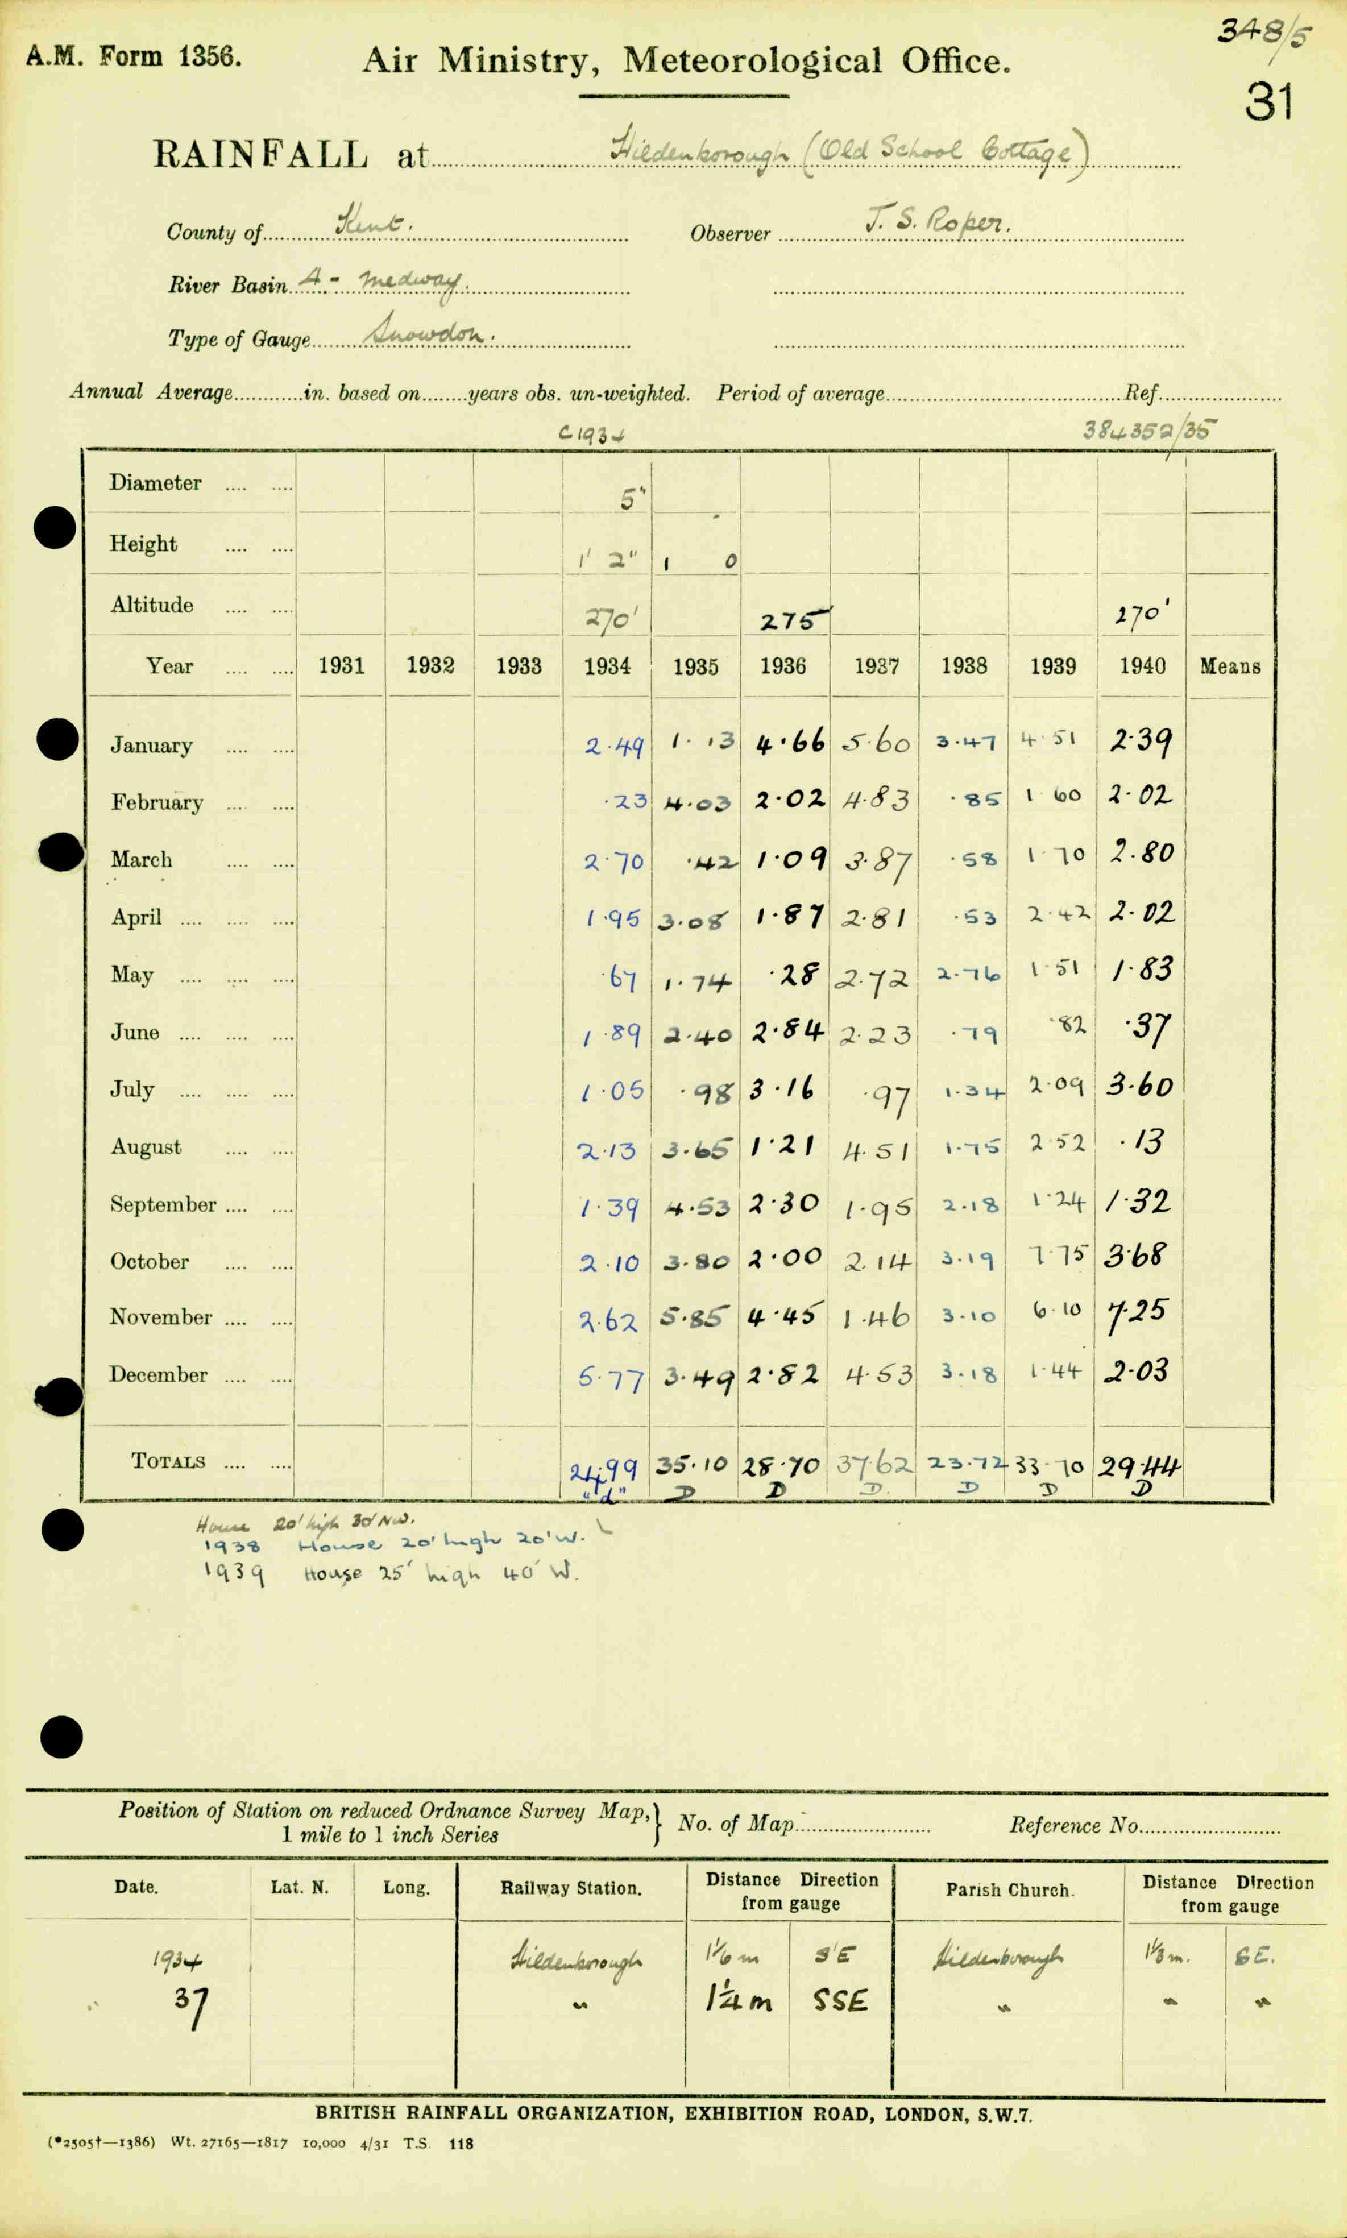 348/5
A.M. Form 1356. Air Ministry, Meteorological Office.
31
RAINFALL at Hildenborough (Old School Cottage)
County of Kent. Observer J. S. Roper.
River Basin A - Medway.
Type of Gauge Snowdon.
Annual Average in. based on years obs. un-weighted. Period of average Ref.
C1934 384352/35
Diameter 5"
Height 1' 2" 1 0
Altitude 270' 275 270'
Year 1931 1932 1933 1934 1935 1936 1937 1938 1939 1940 Means
January 2.49 1.13 4.66 5.60 3.47 4.51 2.39
February .23 4.03 2.02 4.83 .85 1.60 2.02
March 2.70 .42 1.09 3.87 .58 1.70 2.80
April 1.95 3.08 1.87 2.81 .53 2.42 2.02
May .67 1.74 .28 2.72 2.76 1.51 1.83
June 1.89 2.40 2.84 2.23 .79 .82 .37
July 1.05 .98 3.16 .97 1.34 2.09 3.60
August 2.13 3.65 1.21 4.51 1.75 2.52 .13
September 1.39 4.53 2.30 1.95 2.18 1.24 1.32
October 2.10 3.80 2.00 2.14 3.19 7.75 3.68
November 2.62 5.85 4.45 1.46 3.10 6.10 7.25
December 5.77 3.49 2.82 4.53 3.18 1.44 2.03
TOTALS 24.99 35.10 28.70 37.62 23.72 33.70 29.44
"d" D D D D D D
House 20' high 30' NW.
1938 House 20' high 20' W.
1939 House 25' high 40' W.
Position of Station on reduced Ordnance Survey Map, } No. of Map Reference No.
1 mile to 1 inch Series
Date. Lat. N. Long. Railway Station. Distance Direction from gauge Parish Church. Distance Direction from gauge
1934 Hildenborough 1 1/6 m S'E Hildenborough 1 1/3 m. SE.
" 37 " 1 1/4 m SSE " " "
BRITISH RAINFALL ORGANIZATION, EXHIBITION ROAD, LONDON, S.W.7.
(*2505†—1386) Wt. 27165—1817 10,000 4/31 T.S. 118